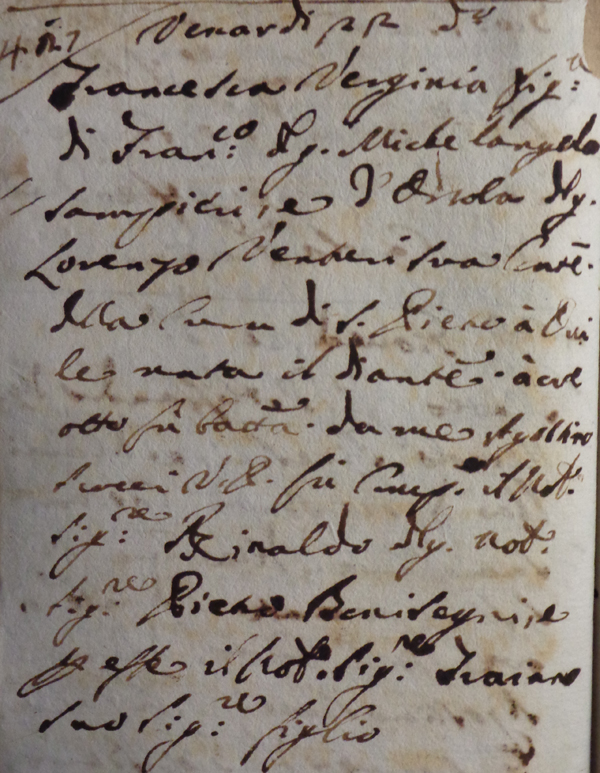 Venardi 22 d.o
Francesca Verginia fig.a
di Fran.co di g. Michelangelo
e D Orsola di g.
Lorenzo Venturi sua Cons.
della Cura di S. Piero à
le nata il diante. à ore
otto fù batta. da me Agostino
V. C. fù Comp. il Not.
Sig.re Rinaldo di g. not.
Sig.re Piero Benisegni, e
p esse il Not. Sig.re Traiano
suo Sig.re figlio